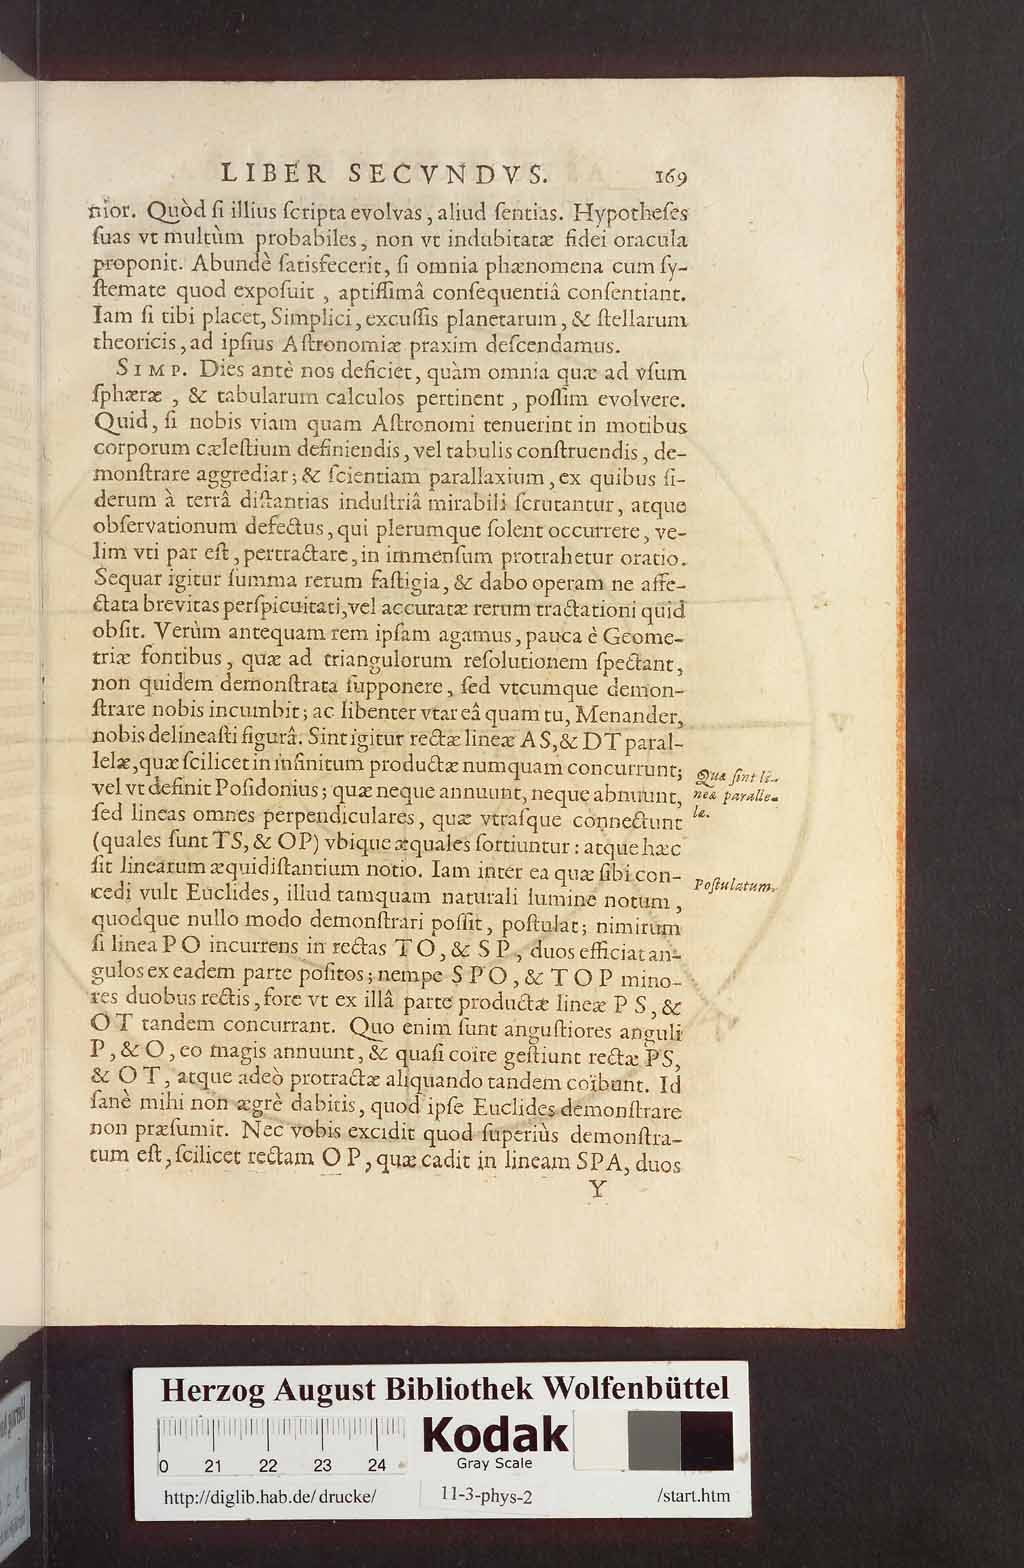 LIBER SECVNDVS. 169
nior. Quòd ſi illius ſcripta evolvas, aliud ſentias. Hypotheſes
ſuas vt multùm probabiles, non vt indubitatæ fidei oracula
proponit. Abundè ſatisfecerit, ſi omnia phænomena cum ſy-
ſtemate quod expoſuit, aptiſſimâ conſequentiâ conſentiant.
Iam ſi tibi placet, Simplici, excuſſis planetarum, & ſtellarum
theoricis, ad ipſius Aſtronomiæ praxim deſcendamus.
SIMP. Dies antè nos deficiet, quàm omnia quæ ad vſum
ſphæræ, & tabularum calculos pertinent, poſſim evolvere.
Quid, ſi nobis viam quam Aſtronomi tenuerint in motibus
corporum cæleſtium definiendis, vel tabulis conſtruendis, de-
monſtrare aggrediar; & ſcientiam parallaxium, ex quibus ſi-
derum à terrâ diſtantias induſtriâ mirabili ſcrutantur, atque
obſervationum defectus, qui plerumque ſolent occurrere, ve-
lim vti par eſt, pertractare, in immenſum protrahetur oratio.
Sequar igitur ſumma rerum faſtigia, & dabo operam ne affe-
ctata brevitas perſpicuitati, vel accuratæ rerum tractationi quid
obſit. Verùm antequam rem ipſam agamus, pauca è Geome-
triæ fontibus, quæ ad triangulorum reſolutionem ſpectant,
non quidem demonſtrata ſupponere, ſed vtcumque demon-
ſtrare nobis incumbit; ac libenter vtar eâ quam tu, Menander,
nobis delineaſti figurâ. Sint igitur rectæ lineæ AS, & DT paral-
lelæ, quæ ſcilicet in infinitum productæ numquam concurrunt;
vel vt definit Poſidonius; quæ neque annuunt, neque abnuunt,
ſed lineas omnes perpendiculares, quæ vtraſque connectunt
(quales ſunt TS, & OP) vbique æquales ſortiuntur: atque hæc
ſit linearum æquidiſtantium notio. Iam inter ea quæ ſibi con-
cedi vult Euclides, illud tamquam naturali lumine notum,
quodque nullo modo demonſtrari poſſit, poſtulat; nimirum
ſi linea PO incurrens in rectas TO, & SP, duos efficiat an-
gulos ex eadem parte poſitos; nempe SPO, & TOP mino-
res duobus rectis, fore vt ex illâ parte productæ lineæ PS, &
OT tandem concurrant. Quo enim ſunt anguſtiores anguli
P, & O, eo magis annuunt, & quaſi coire geſtiunt rectæ PS,
& OT, atque adeò protractæ aliquando tandem coïbunt. Id
ſanè mihi non ægrè dabitis, quod ipſe Euclides demonſtrare
non præſumit. Nec vobis excidit quod ſuperiùs demonſtra-
tum eſt, ſcilicet rectam OP, quæ cadit in lineam SPA, duos
Y
Quæ ſint li-
neæ paralle-
læ.
Poſtulatum.
Herzog August Bibliothek Wolfenbüttel
Kodak
Gray Scale
0 21 22 23 24
http://diglib.hab.de/drucke/ 11-3-phys-2 /start.htm